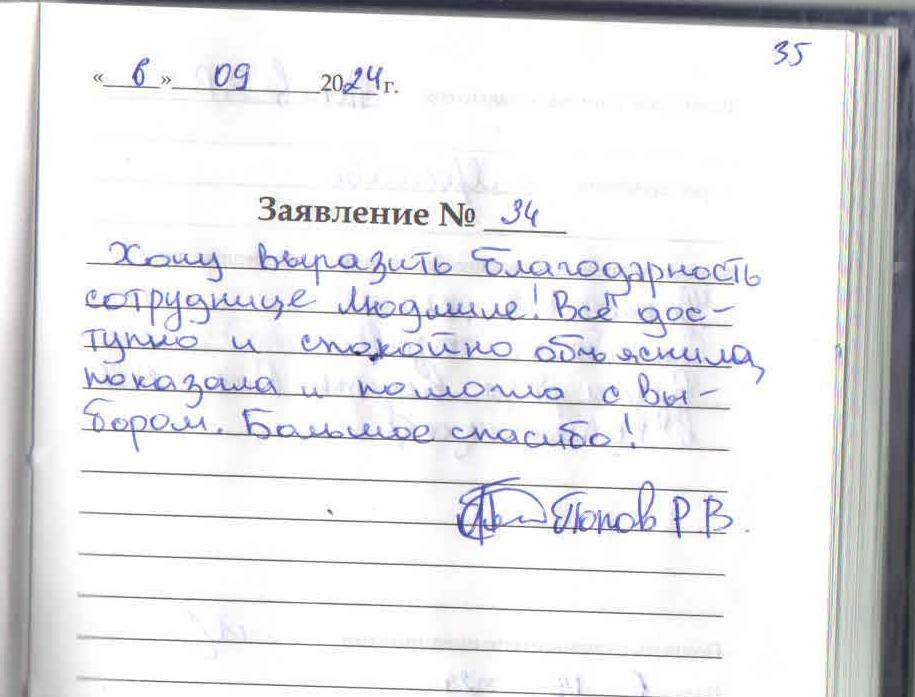 35
« 6 » 09 2024 г.
Заявление № 34
Хочу выразить благодарность
сотруднице Людмиле! Всё дос-
тупно и спокойно объяснила,
показала и помогла с вы-
бором. Большое спасибо!
Попов Р В.